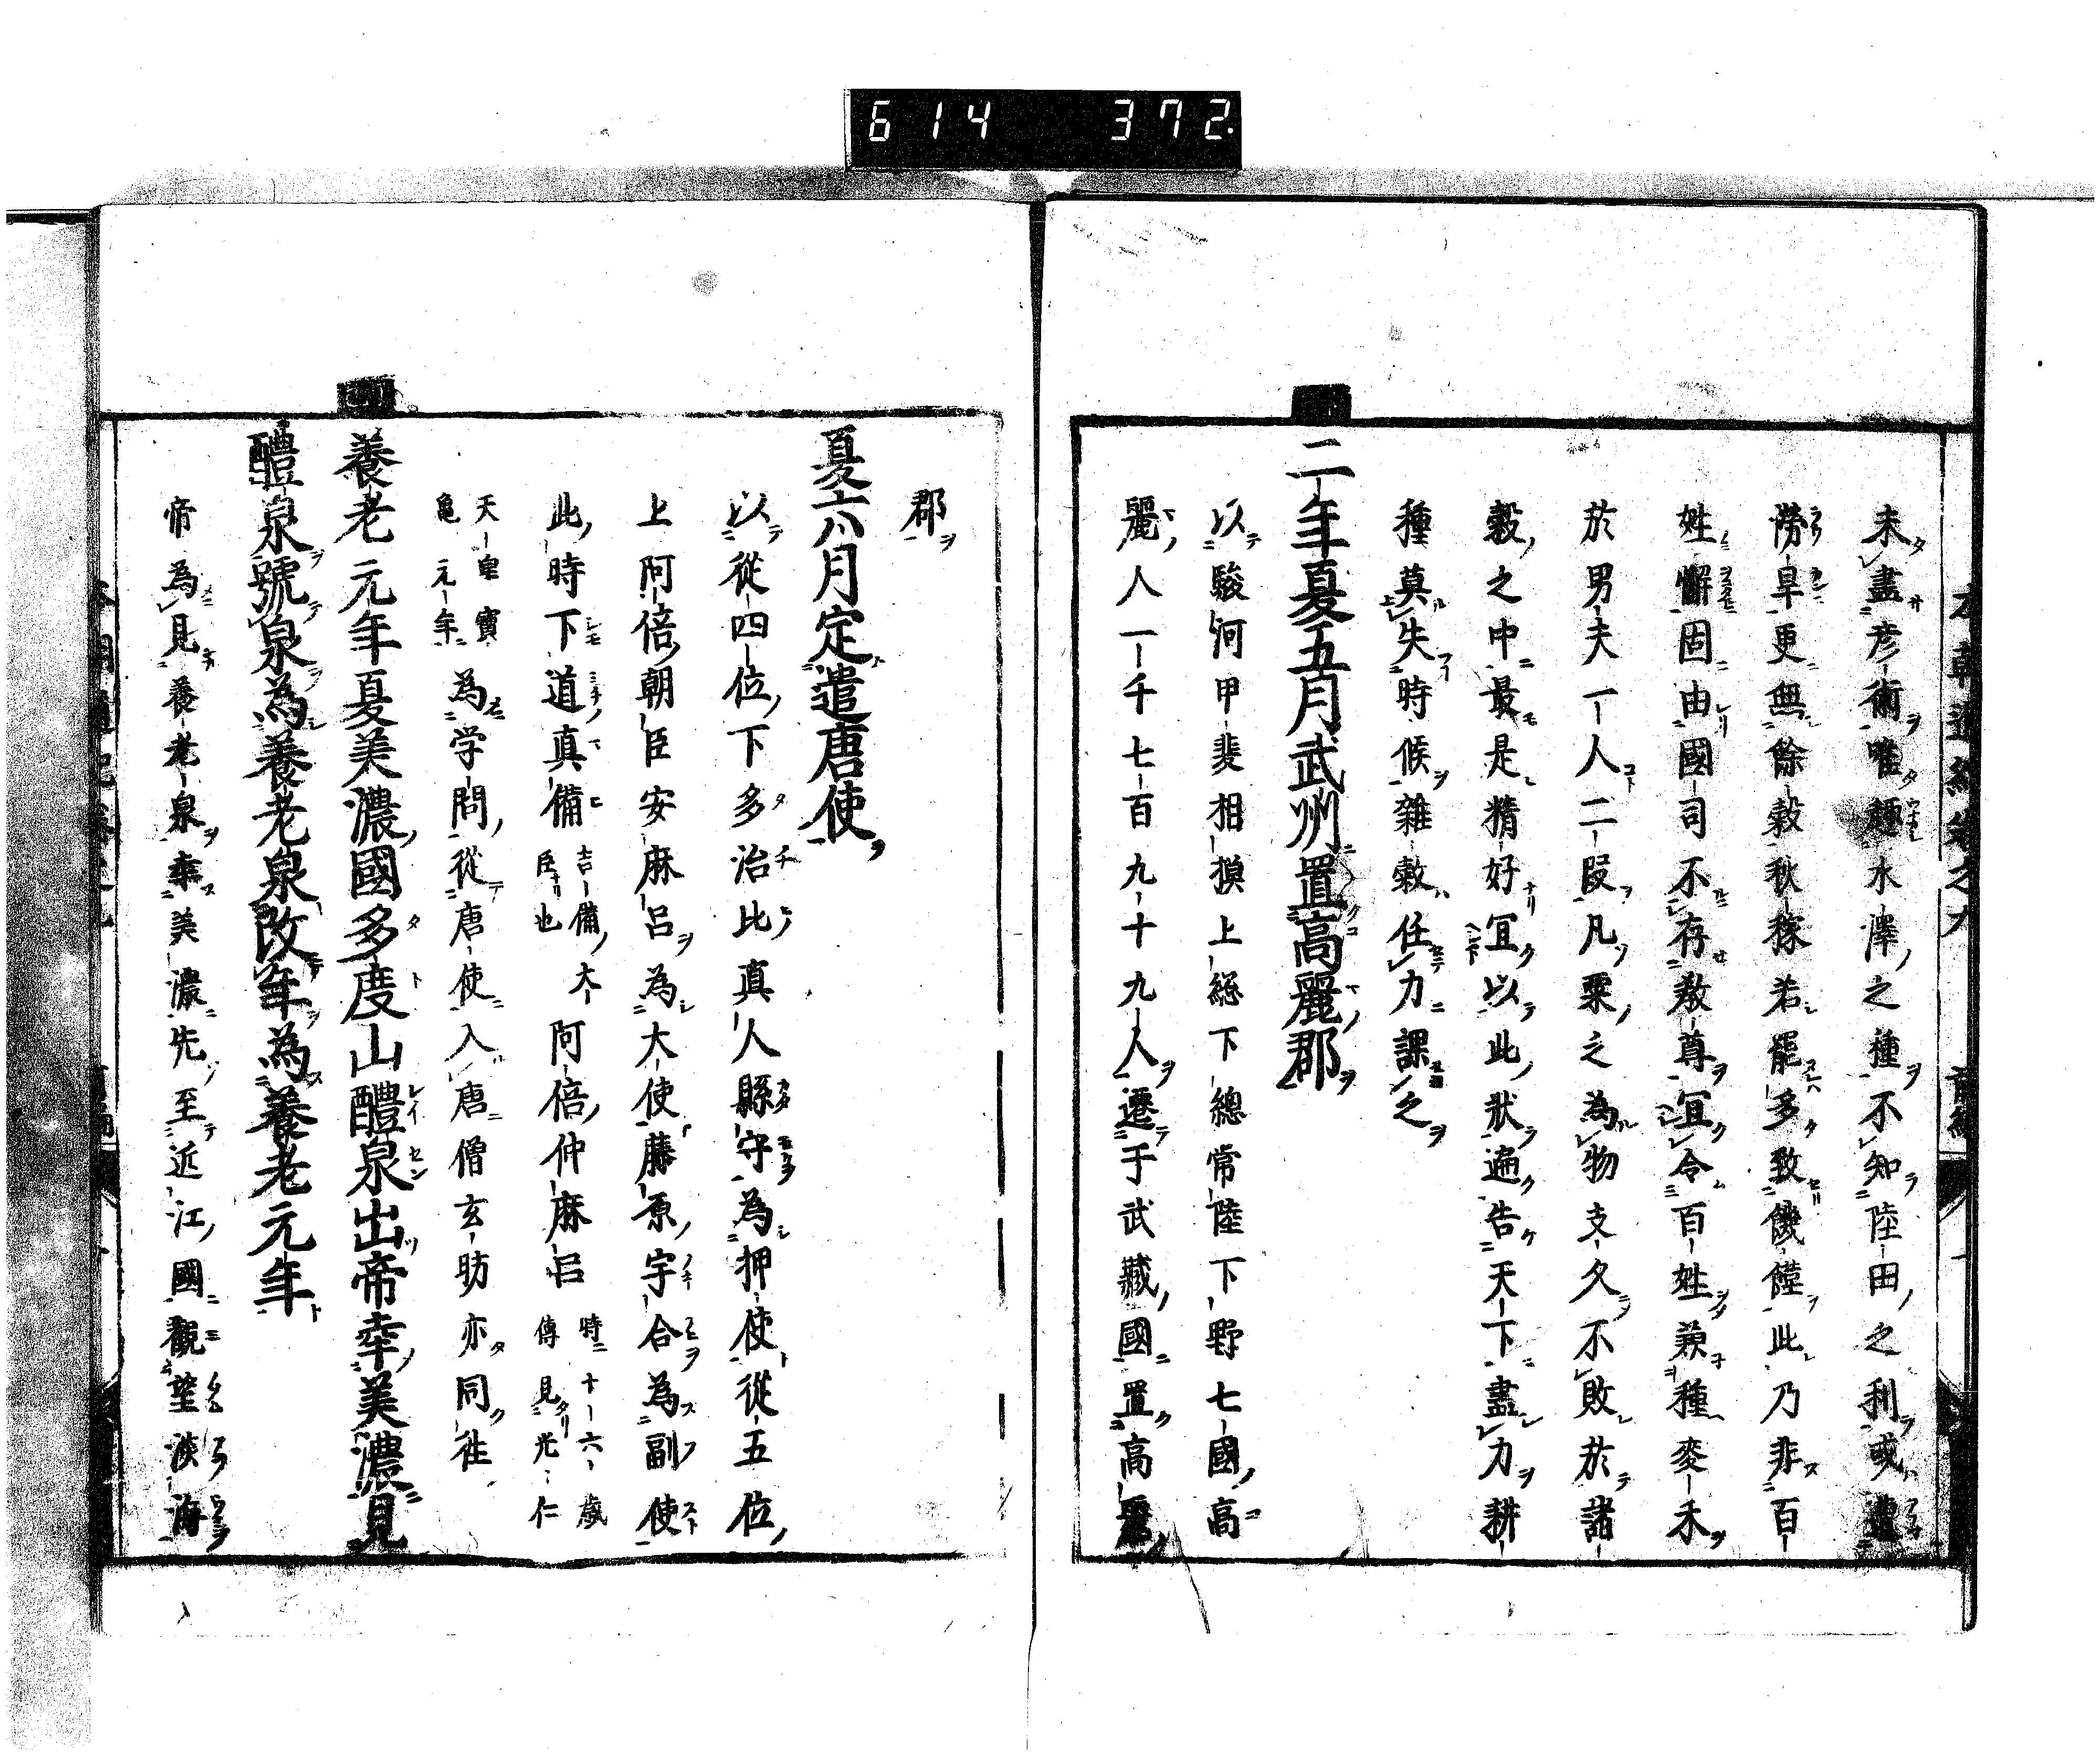 614 372
未盡彦術唯趣水澤之種不知陸田之利或遭
澇旱更無餘穀秋稼若罷多致饑饉此乃非百
姓懈固由國司不存教導宜令百姓兼種麥禾
於男夫一人二段凡粟之為物支久不敗於諸
穀之中最是精好宜以此狀遍告天下盡力耕
種莫失時候雜穀任力課之
二年夏五月武州置高麗郡
以駿河甲斐相摸上総下總常陸下野七國高
麗人一千七百九十九人遷于武藏國置高麗
郡
夏六八月定遣唐使
以從四位下多治比真人縣守為押使從五位
上阿倍朝臣安麻呂為大使藤原宇合為副使
此時下道真備吉備大臣也阿倍仲麻呂時十六歲傳見光仁
天皇寶亀元年為学問從唐使入唐僧玄昉亦同往
養老元年夏美濃國多度山醴泉出帝幸美濃見
醴泉號泉為養老泉改年為養老元年
帝為見養老泉幸美濃先至近江國觀望淡海